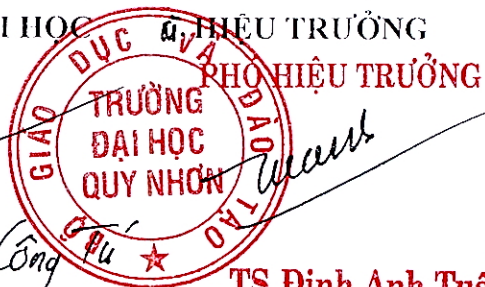 HỌC HIỆU TRƯỞNG
PHÓ HIỆU TRƯỞNG
BỘ GIÁO DỤC VÀ ĐÀO TẠO
TRƯỜNG
ĐẠI HỌC
QUY NHƠN
Công Tú
TS Đinh Anh Tuấ